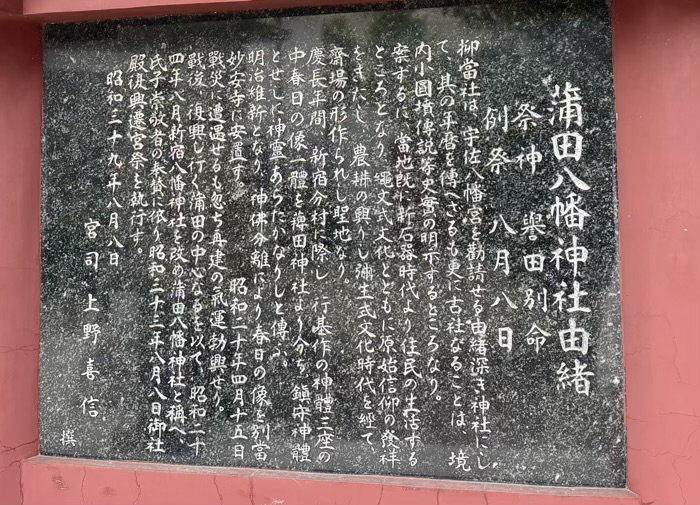 蒲田八幡神社由緒
祭神　譽田別命
例祭　八月八日
抑當社は、宇佐八幡宮を勸請せる由緒深き神社にし
て、其の年暦を傳へざるも更に古社なることは、境
内小圓墳傳説等史實の明示するところなり。
案するに、當地既に新石器時代より住民の生活する
ところとなり、繩文式文化とともに原始信仰の發祥
をきたし、農耕の興りし彌生式文化時代を經て、
齋場の形作られし聖地なり。
慶長年間、新宿分村に際し、行基作の神體三座の
中春日の像一體を薭田神社より分ち鎮守神體
とせしに神靈あらたかなりしと傳ふ。
明治維新となり、神佛分離により春日の像を別當
妙安寺に安置す。　昭和二十年四月十五日
戰災に遭遇せるも忽ち再建の氣運勃興せり。
戰後、復興し行く蒲田の中心なるを以て、昭和二十
四年八月新宿八幡神社を改め蒲田八幡神社と稱へ、
氏子崇敬者の奉賛に依り昭和三十三年八月八日御社
殿復興遷宮祭を執行す。
昭和三十九年八月八日
宮司　上野喜信　撰